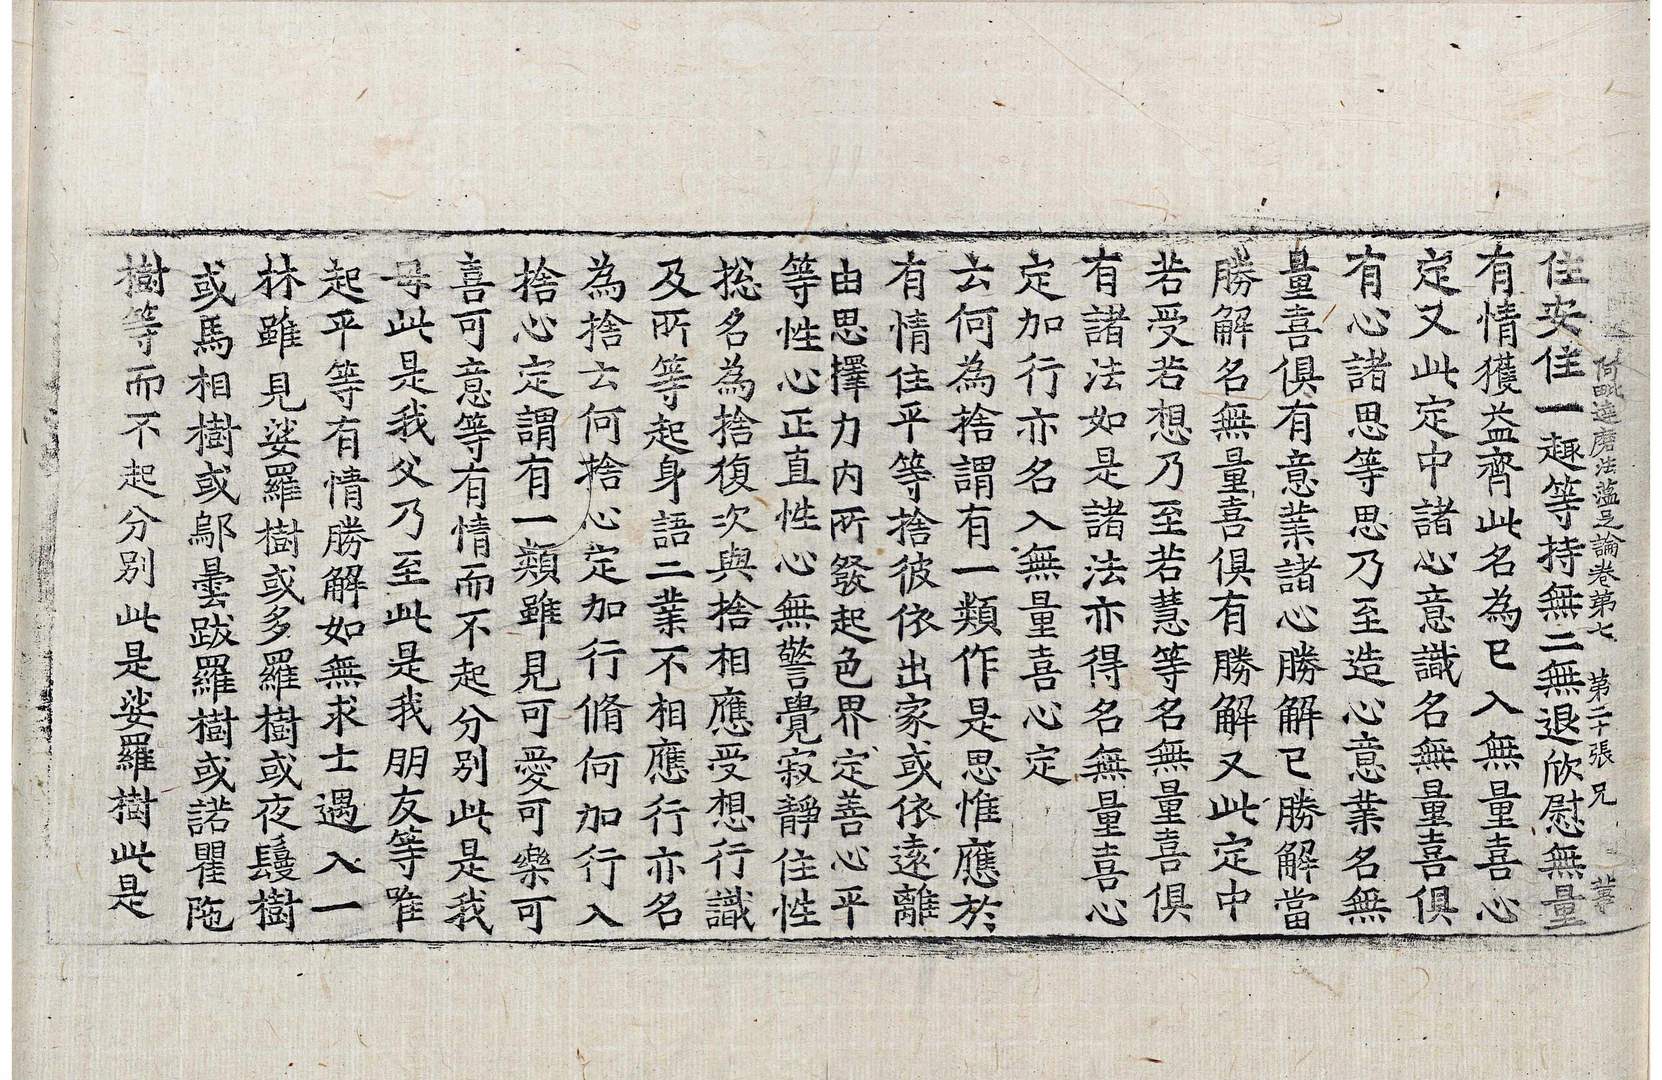 阿毗達磨法蘊足論卷第七 第二十張 兄
住安住一趣等持無二無退欣慰無量
有情獲益齊此名為已入無量喜心
定又此定中諸心意識名無量喜俱
有心諸思等思乃至造心意業名無
量喜俱有意業諸心勝解已勝解當
勝解名無量喜俱有勝解又此定中
若受若想乃至若慧等名無量喜俱
有諸法如是諸法亦得名無量喜心
定加行亦名入無量喜心定
云何為捨謂有一類作是思惟應於
有情住平等捨彼依出家或依遠離
由思擇力內所發起色界定善心平
等性心正直性心無警覺寂靜住性
捴名為捨復次與捨相應受想行識
及所等起身語二業不相應行亦名
為捨云何捨心定加行脩何加行入
捨心定謂有一類雖見可愛可樂可
喜可意等有情而不起分別此是我
母此是我父乃至此是我朋友等唯
起平等有情勝解如無求士遇入一
林雖見娑羅樹或多羅樹或夜䭇樹
或馬相樹或鄔曇跋羅樹或諾瞿陁
樹等而不起分別此是娑羅樹此是